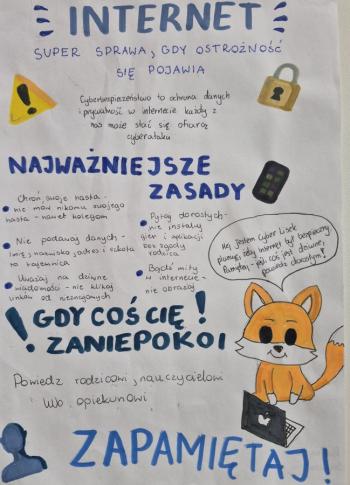 INTERNET
SUPER SPRAWA, GDY OSTROŻNOŚĆ
SIĘ POJAWIA
Cyberbezpieczeństwo to ochrona danych
i prywatność w internecie każdy z
nas może stać się ofiarą
cyberataku
NAJWAŻNIEJSZE
ZASADY
Chroń swoje hasła -
nie mów nikomu swojego
hasła - nawet kolegom
Nie podawaj danych -
imię, nazwisko, adres i szkoła
to tajemnica
Uważaj na dziwne
wiadomości - nie klikaj
linków od nieznajomych
Pytaj dorosłych -
nie instaluj
gier i aplikacji
bez zgody
rodzica
Bądź miły
w internecie -
nie obrażaj
Hej, jestem Cyber Lisek
pilnuję, żeby internet był bezpieczny
Pamiętaj - jeśli coś jest dziwne,
powiedz dorosłym!
! GDY COŚ CIĘ !
ZANIEPOKOI
Powiedz rodzicowi, nauczycielowi
lub opiekunowi
ZAPAMIĘTAJ!